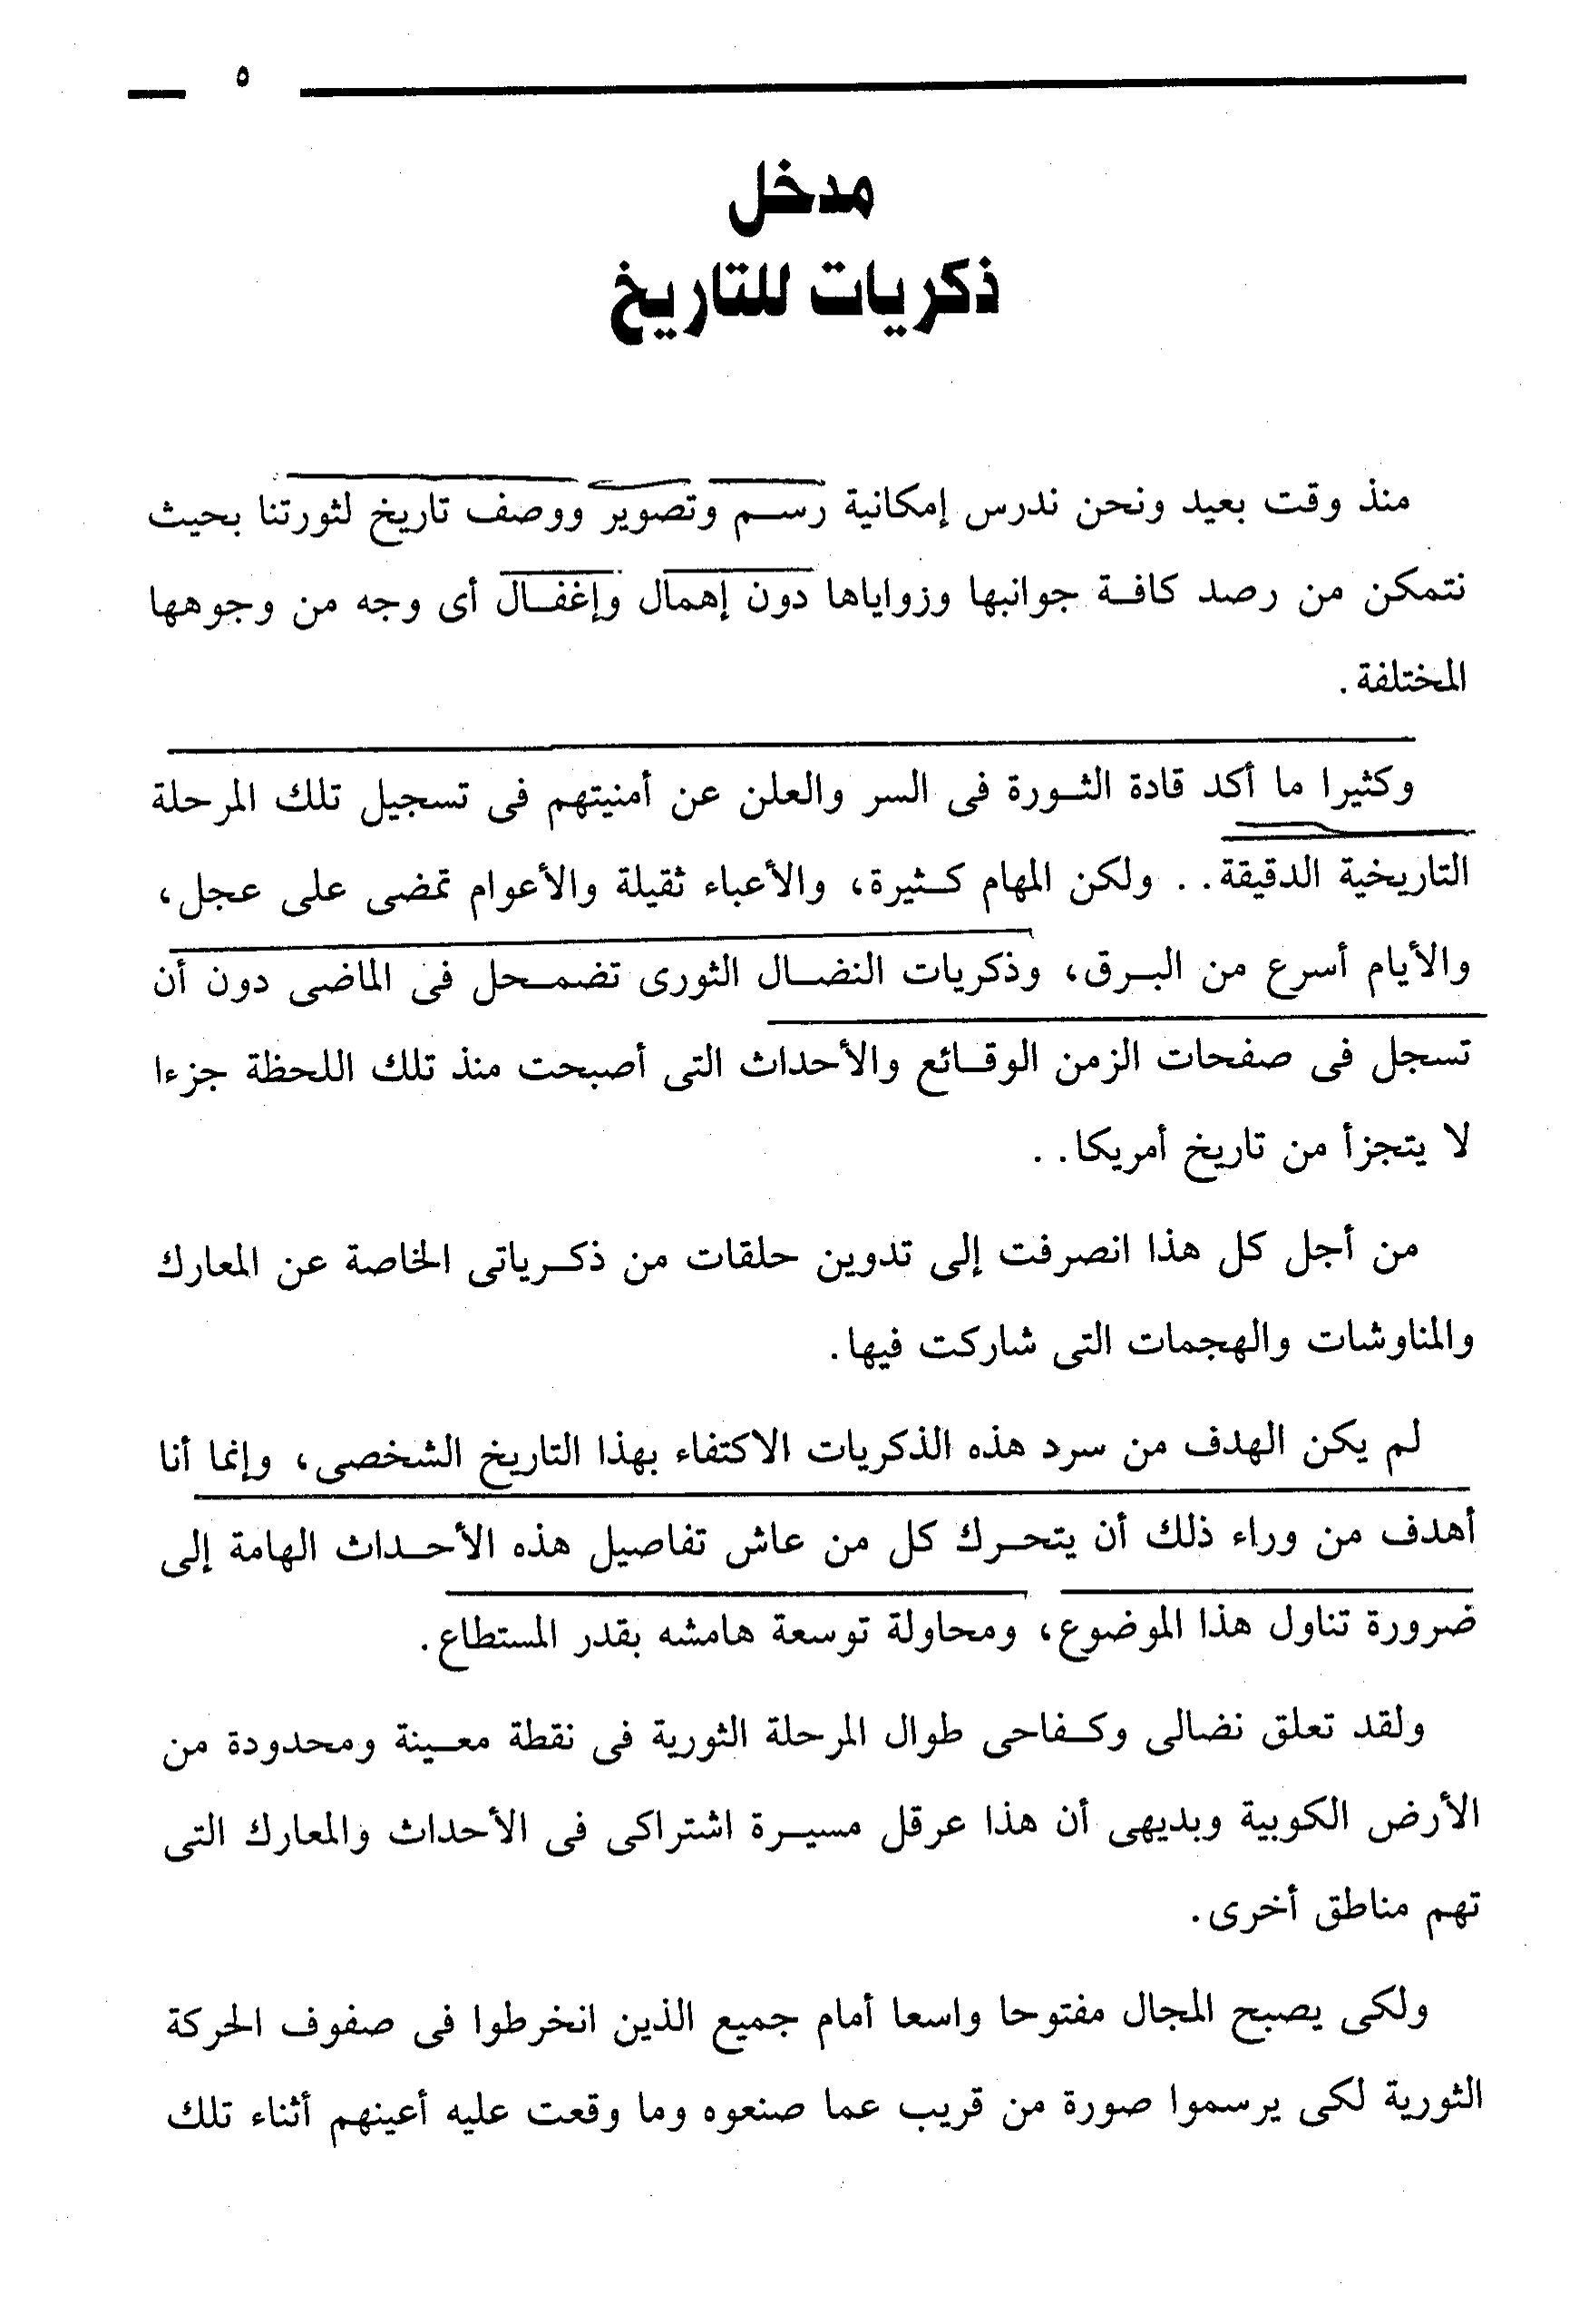 ٥
مدخل
ذكريات للتاريخ
منذ وقت بعيد ونحن ندرس إمكانية رسم وتصوير ووصف تاريخ لثورتنا بحيث
نتمكن من رصد كافة جوانبها وزواياها دون إهمال وإغفال أى وجه من وجوهها
المختلفة.
وكثيرا ما أكد قادة الثورة فى السر والعلن عن أمنيتهم فى تسجيل تلك المرحلة
التاريخية الدقيقة.. ولكن المهام كثيرة، والأعباء ثقيلة والأعوام تمضى على عجل،
والأيام أسرع من البرق، وذكريات النضال الثورى تضمحل فى الماضى دون أن
تسجل فى صفحات الزمن الوقائع والأحداث التى أصبحت منذ تلك اللحظة جزءا
لا يتجزأ من تاريخ أمريكا..
من أجل كل هذا انصرفت إلى تدوين حلقات من ذكرياتى الخاصة عن المعارك
والمناوشات والهجمات التى شاركت فيها.
لم يكن الهدف من سرد هذه الذكريات الاكتفاء بهذا التاريخ الشخصى، وإنما أنا
أهدف من وراء ذلك أن يتحرك كل من عاش تفاصيل هذه الأحداث الهامة إلى
ضرورة تناول هذا الموضوع، ومحاولة توسعة هامشه بقدر المستطاع.
ولقد تعلق نضالى وكفاحى طوال المرحلة الثورية فى نقطة معينة ومحدودة من
الأرض الكوبية وبديهى أن هذا عرقل مسيرة اشتراكى فى الأحداث والمعارك التى
تهم مناطق أخرى.
ولكى يصبح المجال مفتوحا واسعا أمام جميع الذين انخرطوا فى صفوف الحركة
الثورية لكى يرسموا صورة من قريب عما صنعوه وما وقعت عليه أعينهم أثناء تلك